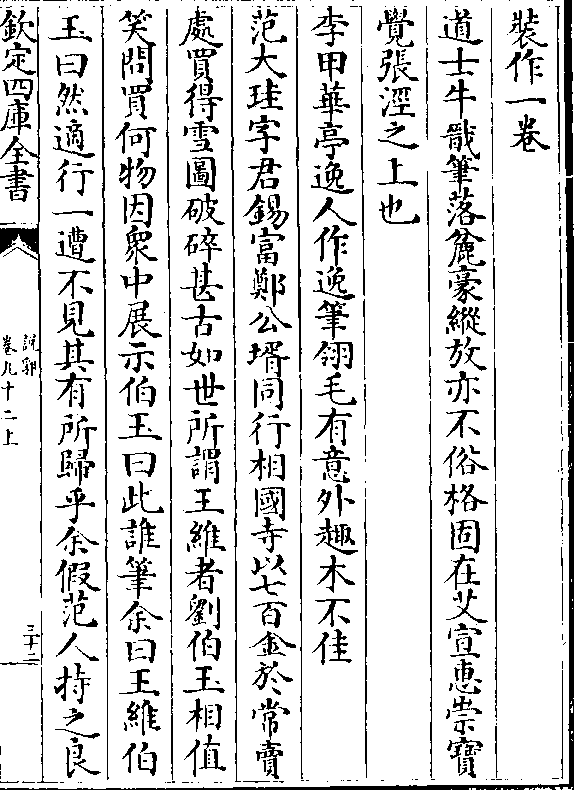 裝作一卷
道士牛戩筆落麄豪縱放亦不俗格固在艾宣惠崇寶
覺張涇之上也
李甲華亭逸人作逸筆翎毛有意外趣木不佳
范大珪字君錫富鄭公壻同行相國寺以七百金於常賣
處買得雪圖破碎甚古如世所謂王維者劉伯玉相值
笑問買何物因衆中展示伯玉曰此誰筆余曰王維伯
玉曰然適行一遭不見其有所歸乎余假范人持之良
欽定四庫全書
說郛
卷九十二上
三十二